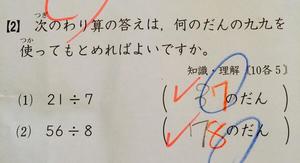 つぎ
【2】 次のわり算の答えは、何のだんの九九を
つか
使ってもとめればよいですか。
知識・理解〔10各5〕
(1) 21÷7 (37のだん)
(2) 56÷8 (78のだん)